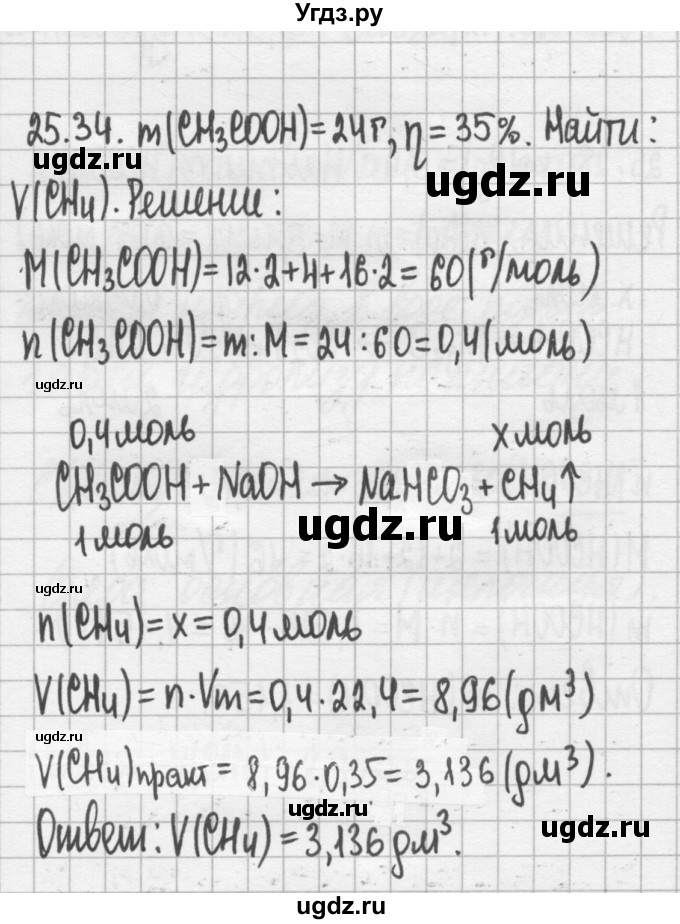 Угдз.ру
25.34. m(CH₃COOH)=24г; η=35%. Найти:
ugdz.ru
ugdz.ru
V(CH₄). Решение:
M(CH₃COOH)=12·2+4+16·2=60(г/моль)
n(CH₃COOH)=m:M=24:60=0,4(моль)
ugdz.ru
0,4моль xмоль
CH₃COOH+NaOH→NaHCO₃+CH₄↑
ugdz.ru
1моль 1моль
ugdz.ru
n(CH₄)=x=0,4моль
V(CH₄)=n·Vm=0,4·22,4=8,96(дм³)
V(CH₄)практ=8,96·0,35=3,136(дм³).
ugdz.ru
Ответ: V(CH₄)=3,136дм³.
ugdz.ru
ugdz.ru